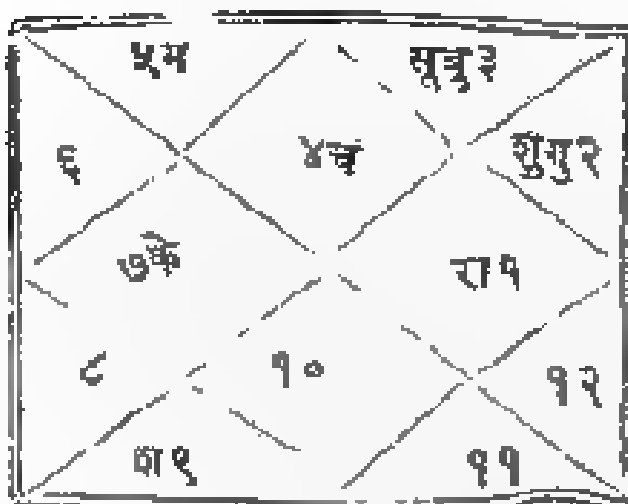 ५म सूबु३
६ ४चं शुगु२
७के रा१
८ १० १२
श९ ११